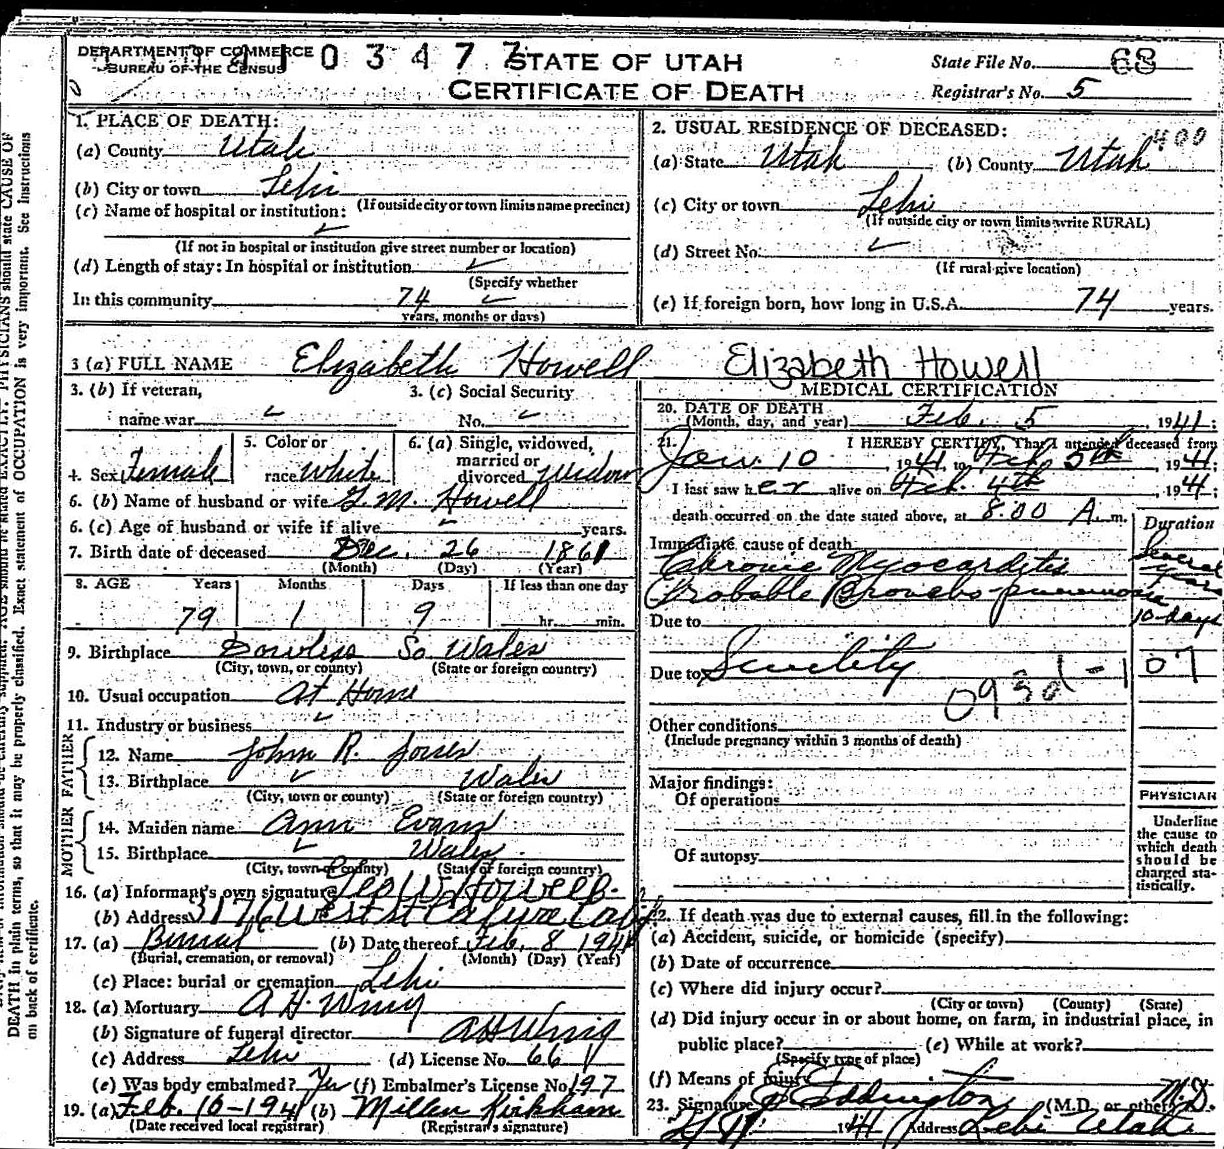 DEPARTMENT OF COMMERCE
BUREAU OF THE CENSUS
0 3 4 7 7
STATE OF UTAH
CERTIFICATE OF DEATH
State File No. 68
Registrar's No. 5
1. PLACE OF DEATH:
(a) County Utah
(b) City or town Lehi
(If outside city or town limits name precinct)
(c) Name of hospital or institution:
(If not in hospital or institution give street number or location)
(d) Length of stay: In hospital or institution
(Specify whether
In this community 74
years, months or days)
2. USUAL RESIDENCE OF DECEASED: 400
(a) State Utah (b) County Utah
(c) City or town Lehi
(If outside city or town limits write RURAL)
(d) Street No.
(If rural give location)
(e) If foreign born, how long in U.S.A. 74 years.
3 (a) FULL NAME Elizabeth Howell Elizabeth Howell
3. (b) If veteran, 3. (c) Social Security
name war No.
4. Sex Female 5. Color or race White 6. (a) Single, widowed, married or divorced Widow
6. (b) Name of husband or wife Howell
6. (c) Age of husband or wife if alive years.
7. Birth date of deceased Dec. 26 1861
(Month) (Day) (Year)
8. AGE Years Months Days If less than one day
79 1 9 hr. min.
9. Birthplace So. Wales
(City, town, or county) (State or foreign country)
10. Usual occupation At Home
11. Industry or business
FATHER
12. Name John R. Jones
13. Birthplace Wales
(City, town or county) (State or foreign country)
MOTHER
14. Maiden name Ann Evans
15. Birthplace Wales
(City, town or county) (State or foreign country)
16. (a) Informant's own signature Geo W. Howell
(b) Address 3176 West St
17. (a) Burial (b) Date thereof Feb. 8 1941
(Burial, cremation, or removal) (Month) (Day) (Year)
(c) Place: burial or cremation Lehi
18. (a) Mortuary A. H. Wing
(b) Signature of funeral director A H Wing
(c) Address Lehi (d) License No. 66
(e) Was body embalmed? Yes (f) Embalmer's License No. 197
19. (a) Feb. 10-1941 (b) Millen Kirkham
(Date received local registrar) (Registrar's signature)
MEDICAL CERTIFICATION
20. DATE OF DEATH
(Month, day, and year) Feb. 5 , 1941;
21. I HEREBY CERTIFY, That I attended deceased from
Jan. 10 , 1941, to Feb 5th , 1941;
I last saw her alive on Feb. 4th , 1941;
death occurred on the date stated above, at 8:00 A. m.
Duration
Immediate cause of death
Chronic Myocarditis Several years
Probable Broncho-pneumonia
Due to 10-days
Due to Senility
093d-1 07
Other conditions
(Include pregnancy within 3 months of death)
Major findings:
Of operations
Of autopsy
PHYSICIAN
Underline
the cause to
which death
should be
charged sta-
tistically.
22. If death was due to external causes, fill in the following:
(a) Accident, suicide, or homicide (specify)
(b) Date of occurrence
(c) Where did injury occur?
(City or town) (County) (State)
(d) Did injury occur in or about home, on farm, in industrial place, in
public place? (e) While at work?
(Specify type of place)
(f) Means of injury
23. Signature Eddington (M.D. or other) M.D.
1941 Address Lehi Utah
DEATH in plain terms, so that it may be properly classified. Exact statement of OCCUPATION is very important. See Instructions
on back of certificate.
PHYSICIANS should state CAUSE OF